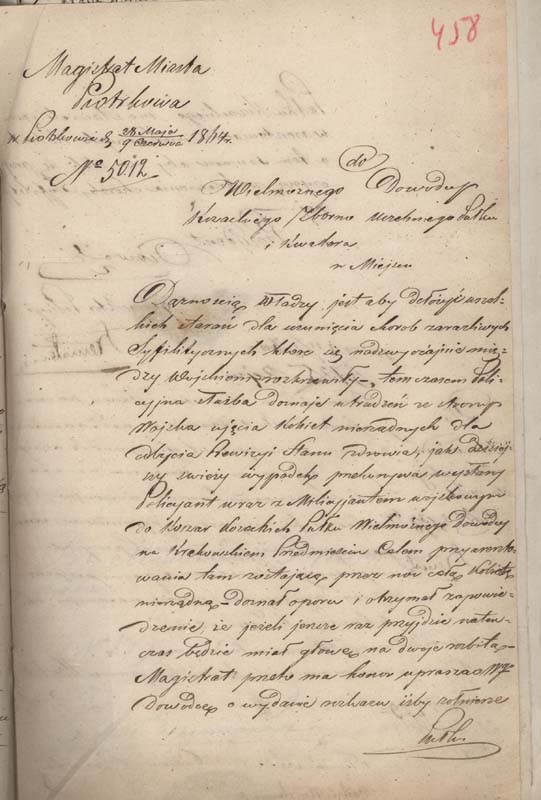 458
Magistrat Miasta
Piotrkowa
w Piotrkowie d. 28 Maja / 9 Czerwca 1864 r.
No 5012.
do
Wielmożnego Dowódcy
Kozackiego Pułku
i Kwatera
w Miejscu
Dążnością Władzy jest aby dołożyć wszel-
kich starań dla usunięcia chorób zaraźliwych
Syfilitycznych które się nadzwyczajnie mię-
dzy Wojskiem rozkrzewiły, – tem czasem Poli-
cyjna służba doznaje utrudzeń ze strony
Wojska ujęcia Kobiet nierządnych dla
odbycia Rewizyi Stanu zdrowia, jak dzisiej-
szy świeży wypadek przekonywa wysłany
Policyant wraz z Milicjantem wojskowym
do Koszar Kozackich Pułku Wielmożnego Dowódcy
na Krakowskiem Przedmieściu Celem przyareszto-
wania tam przez noc całą Kobietę
nierządną – doznał oporu i otrzymał zapowie-
dzenie że jeżeli jeszcze raz przyjdzie naten-
czas będzie miał głowę na dwoje rozbitą –
Magistrat przeto ma honor upraszać Wgo
Dowódcę o wydanie rozkazu iżby żołnierze
Pułku